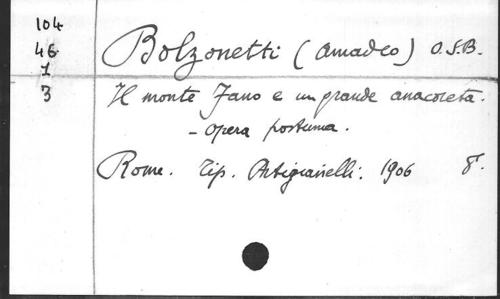 104
46
1
3
Bolzonetti (Amadeo) O.S.B.
Il monte Fano e un grande anacoreta.
- Opera postuma.
Rome. Tip. Artigianelli. 1906 8°.